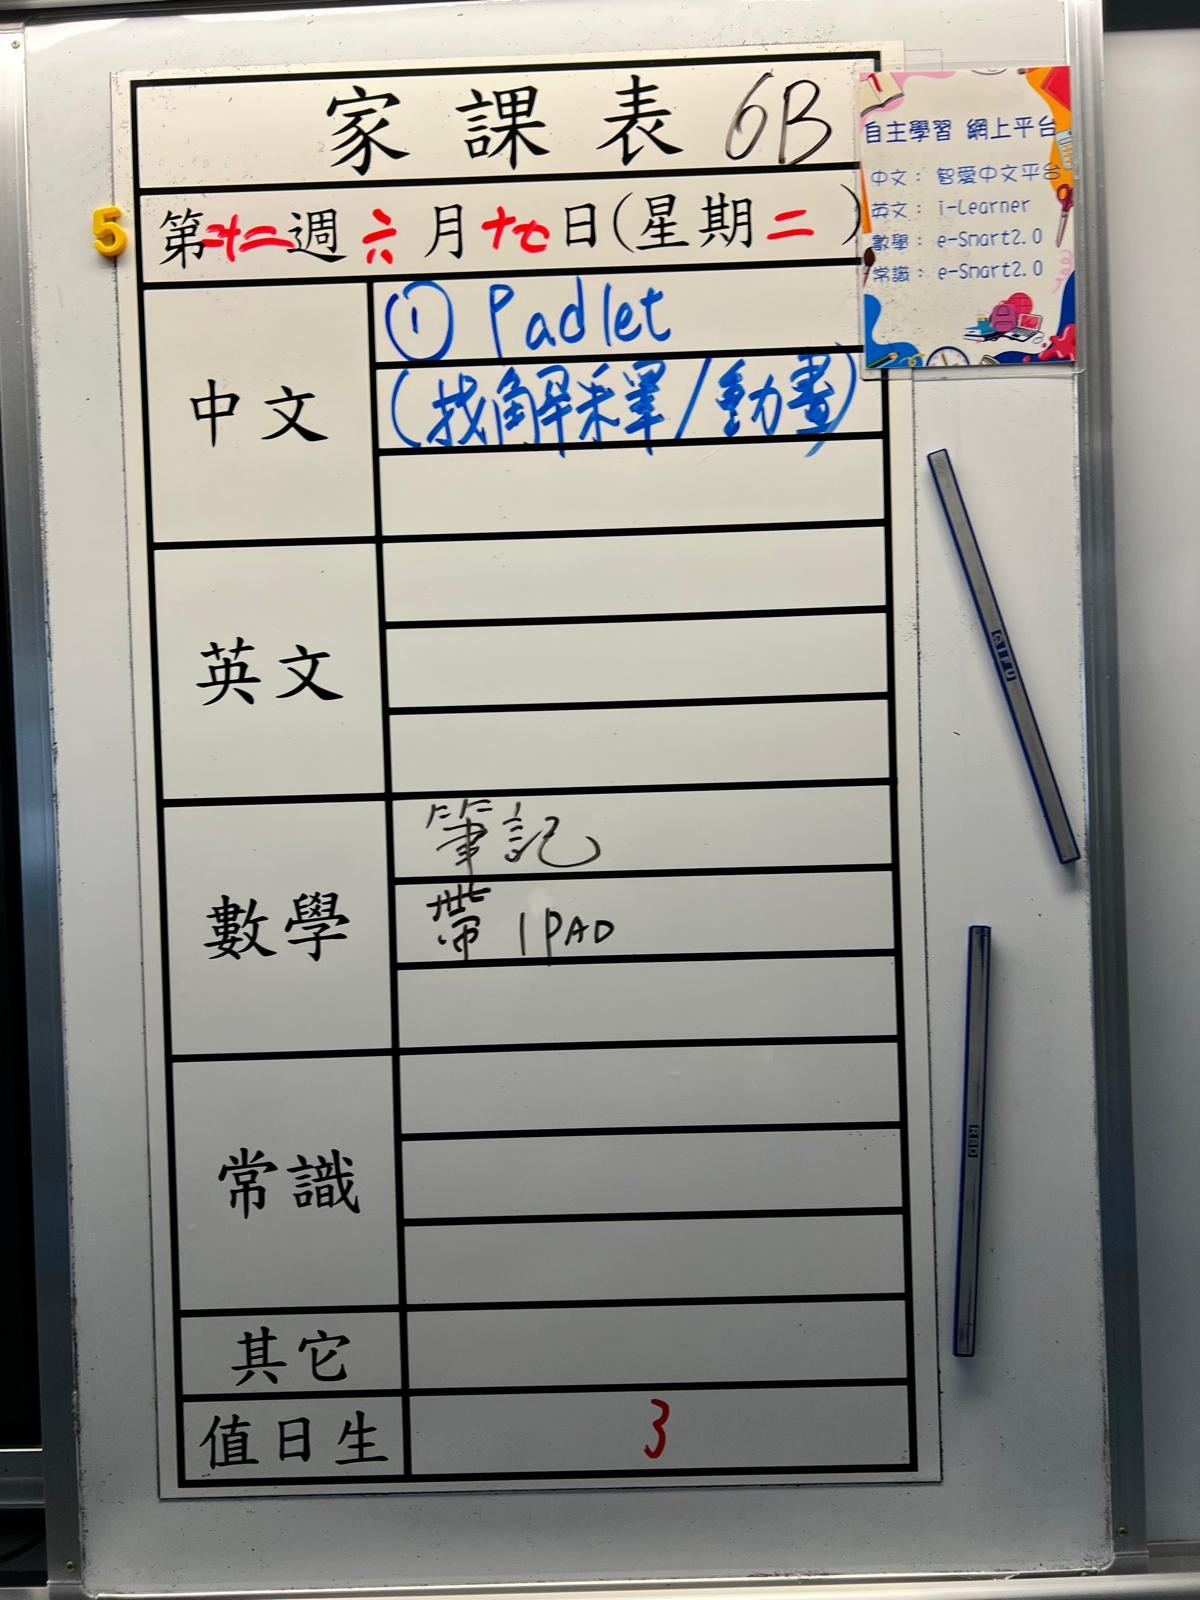 家課表 6B
第二十二週 六月十七日(星期二)
5
自主學習 網上平台
中文: 智愛中文平台
英文: i-Learner
數學: e-Smart2.0
常識: e-Smart2.0
中文
① Padlet
(找解釋/動畫)
英文
數學
筆記
帶 IPAD
常識
其它
值日生
3